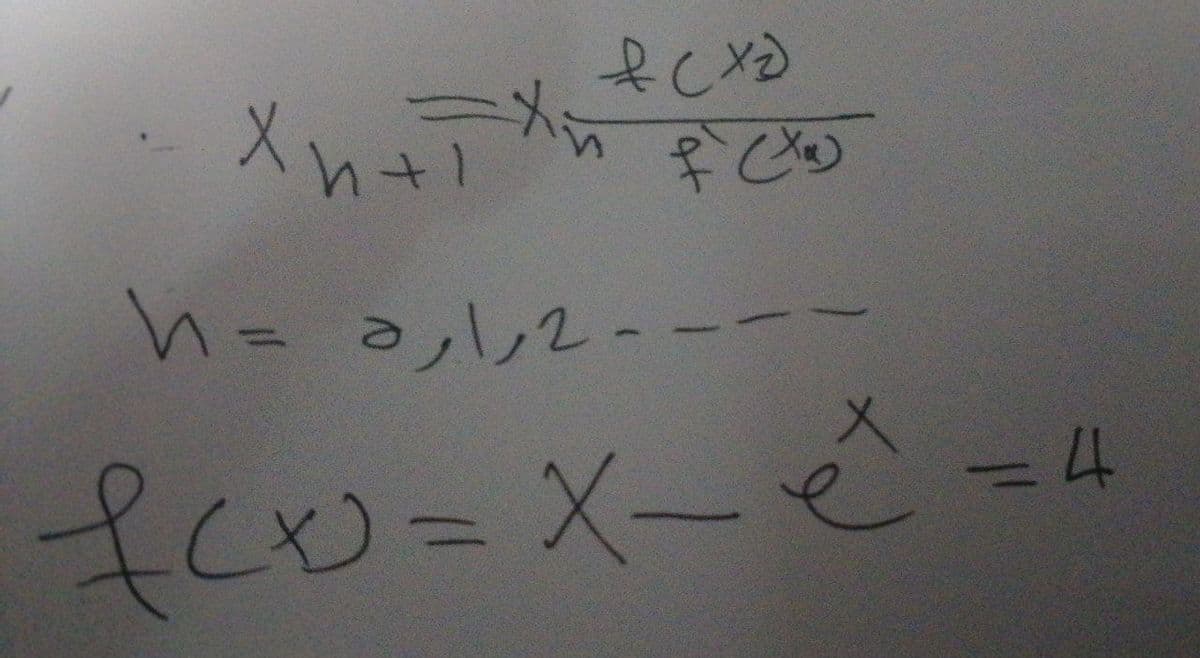 Xn+1 = Xn f(X2) / f`(Xn)
n = 0,1,2 - - - -
f(x) = X - e^x = 4